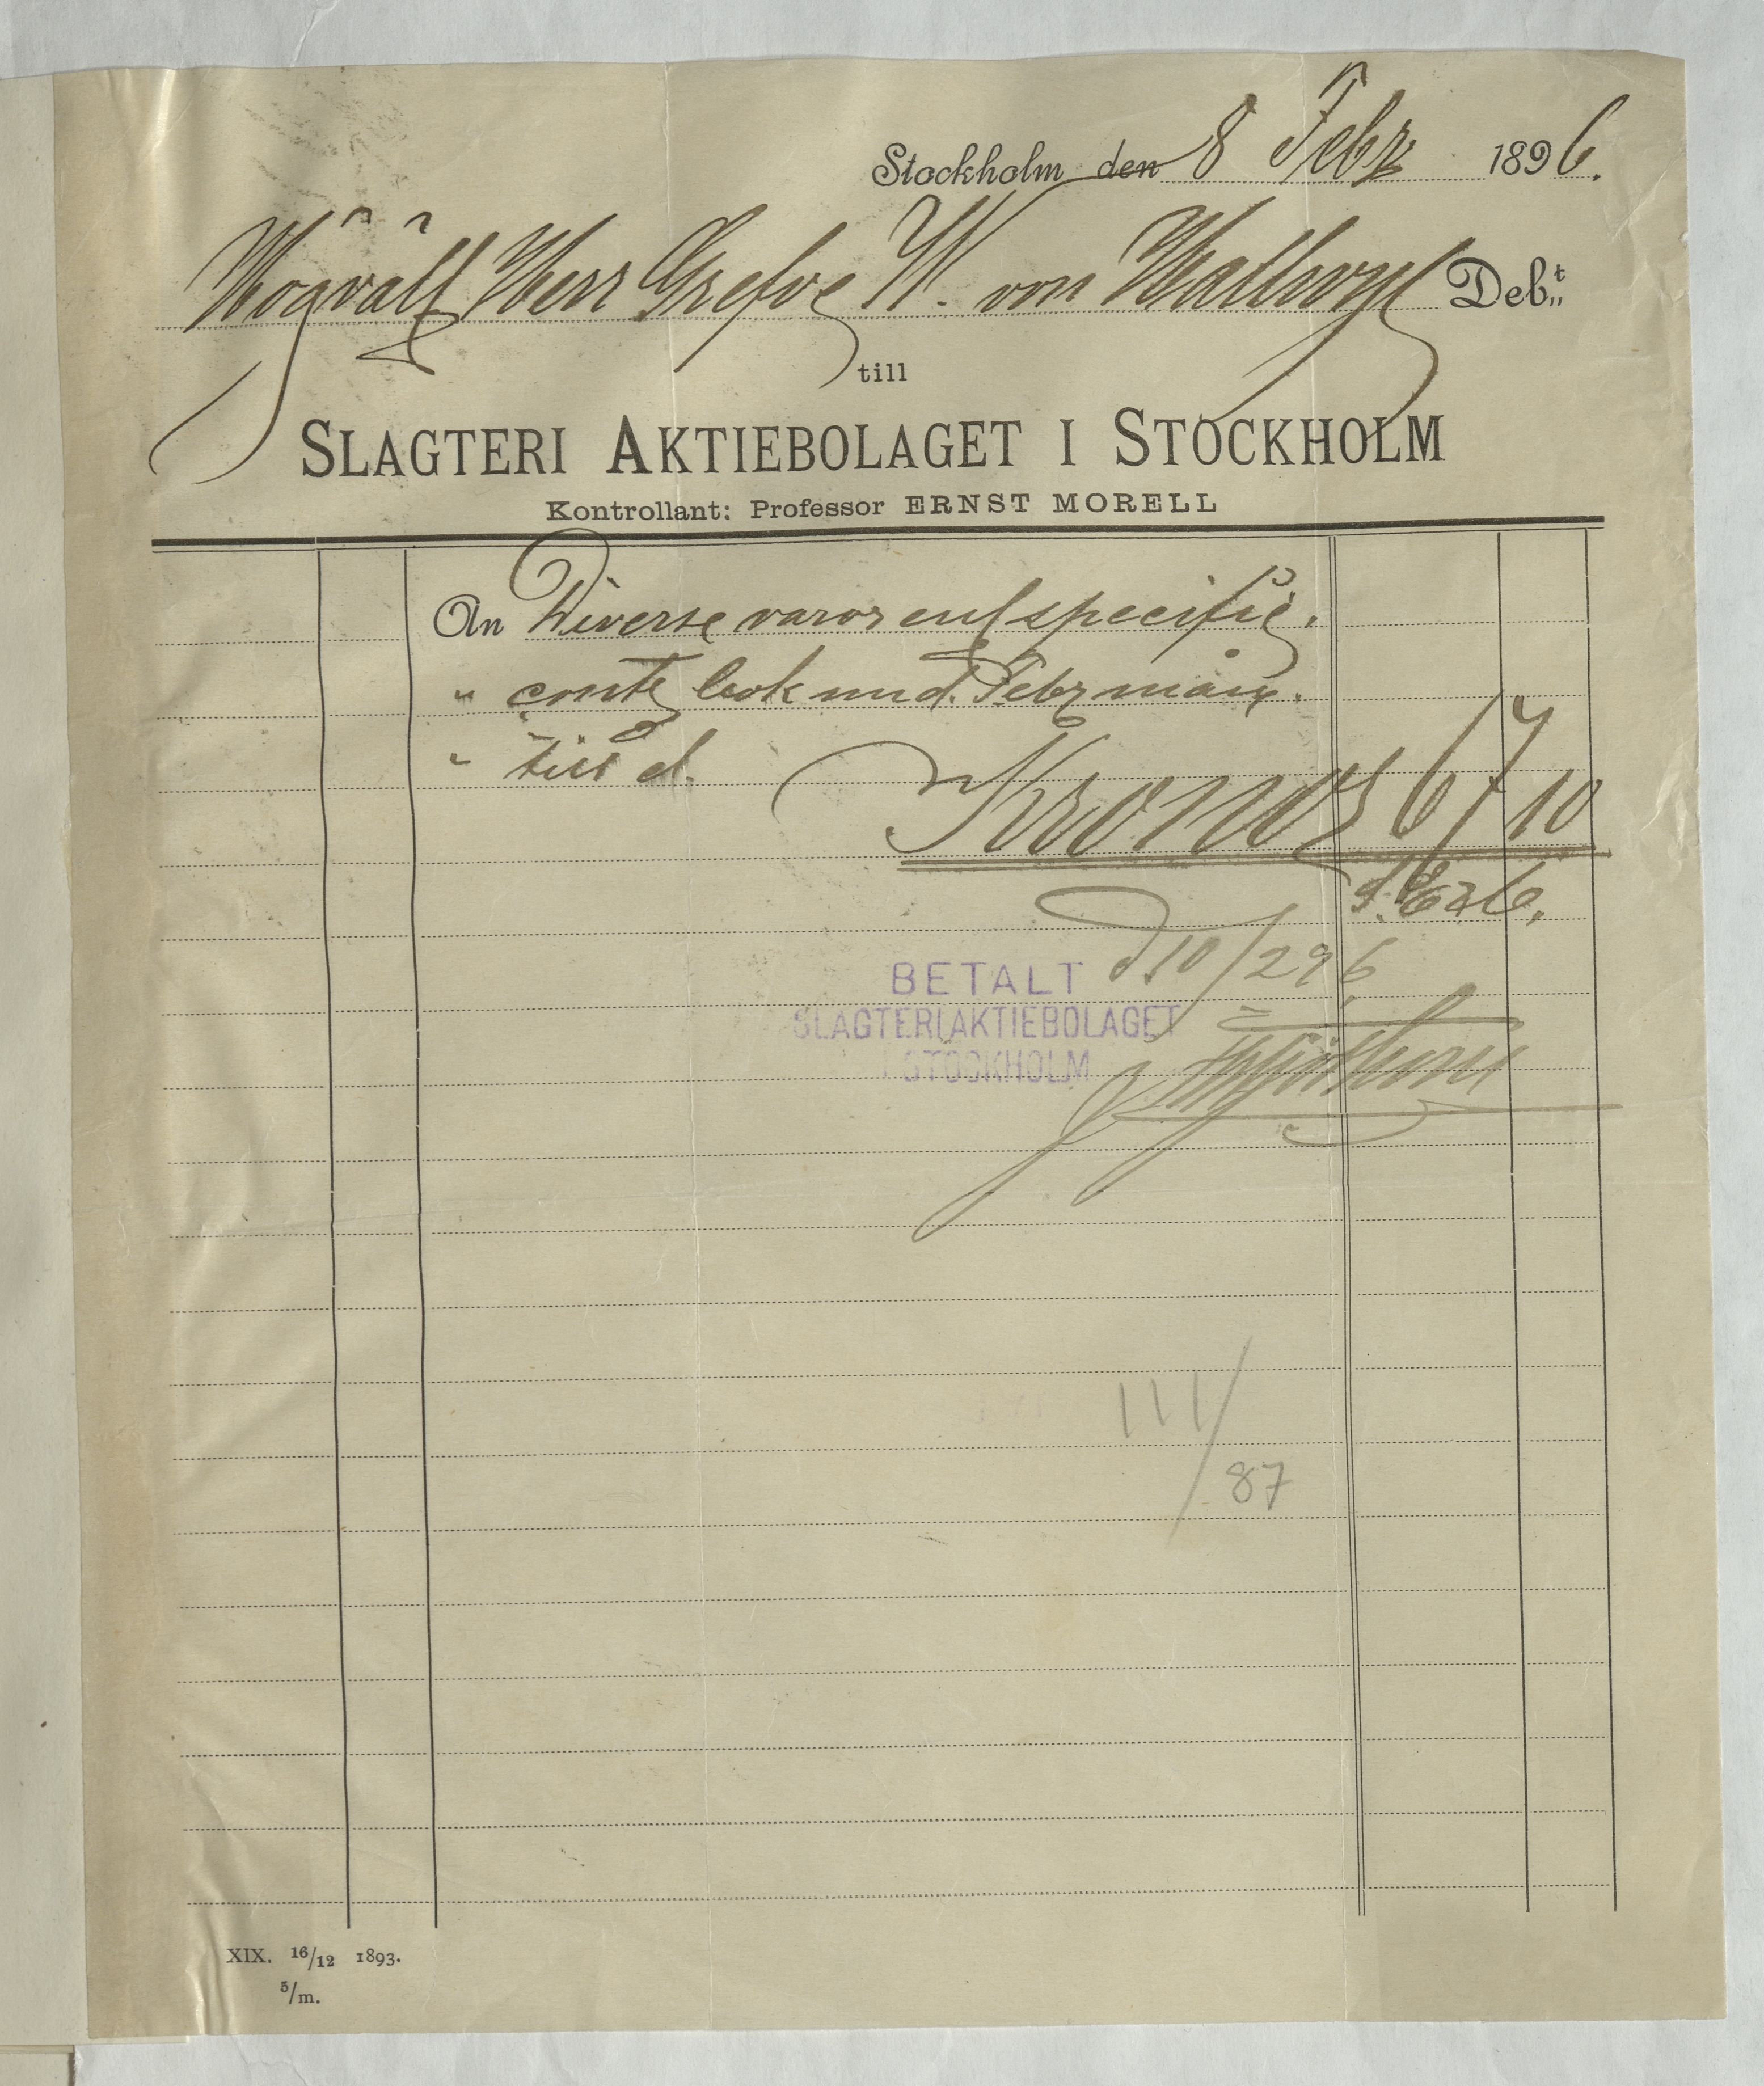 Stockholm den 8 Febr 1896.
Högväll Herr Grefve W. von Hallwyl Debt.
till
SLAGTERI AKTIEBOLAGET I STOCKHOLM
Kontrollant: Professor ERNST MORELL
An Diverse varor enl specific.
" conto bok und. Febr mån.
" till d.
Kronor 67 10
BETALT d. 10/2 96
SLAGTERIAKTIEBOLAGET
I STOCKHOLM
111/87
XIX. 16/12 1893.
5/m.